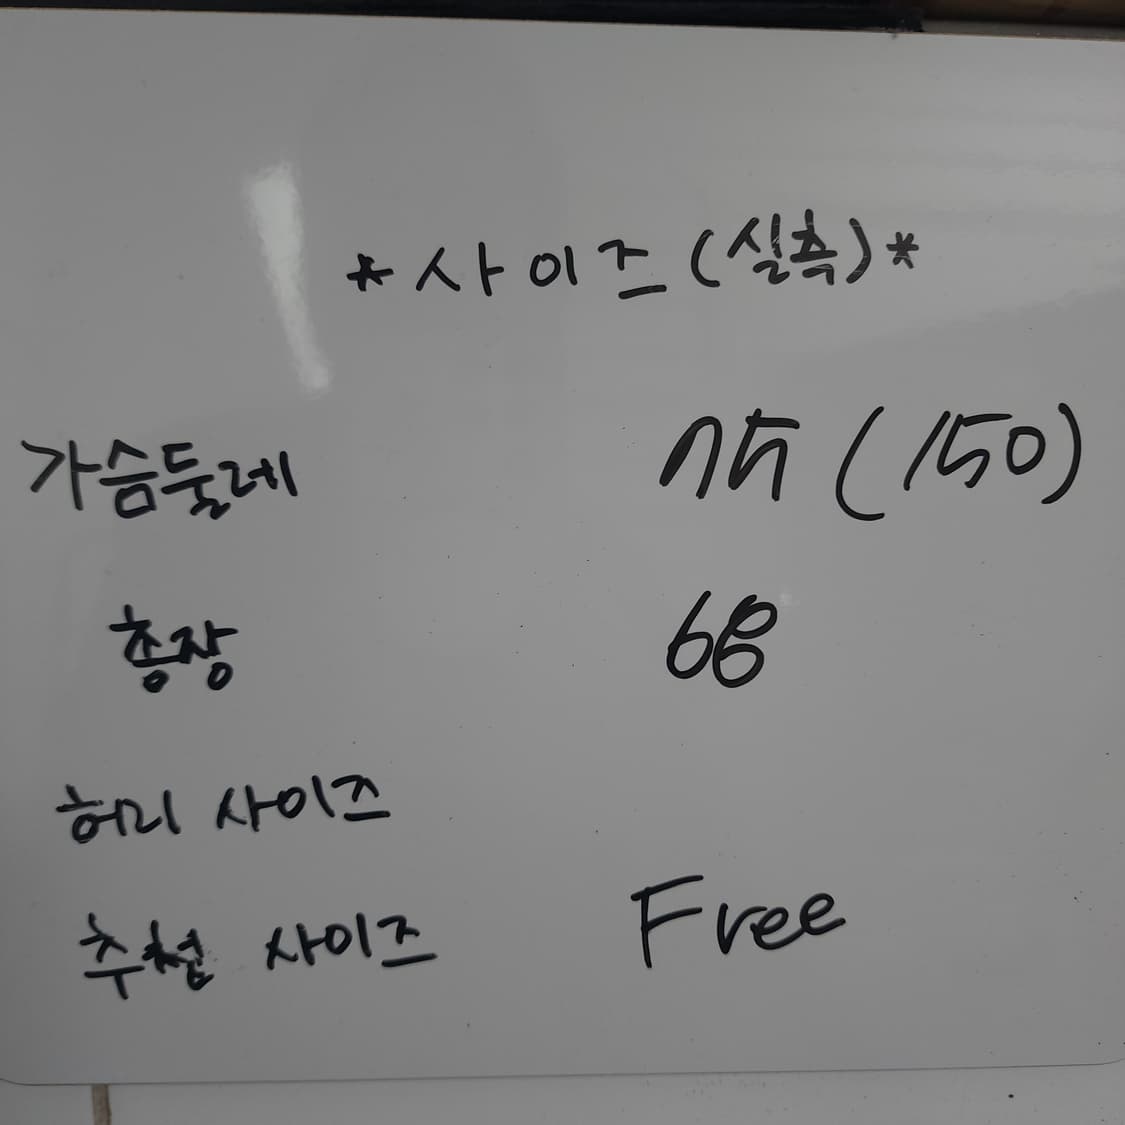 *사이즈(실측)*
가슴둘레 75(150)
총장 68
허리 사이즈
추천 사이즈 Free